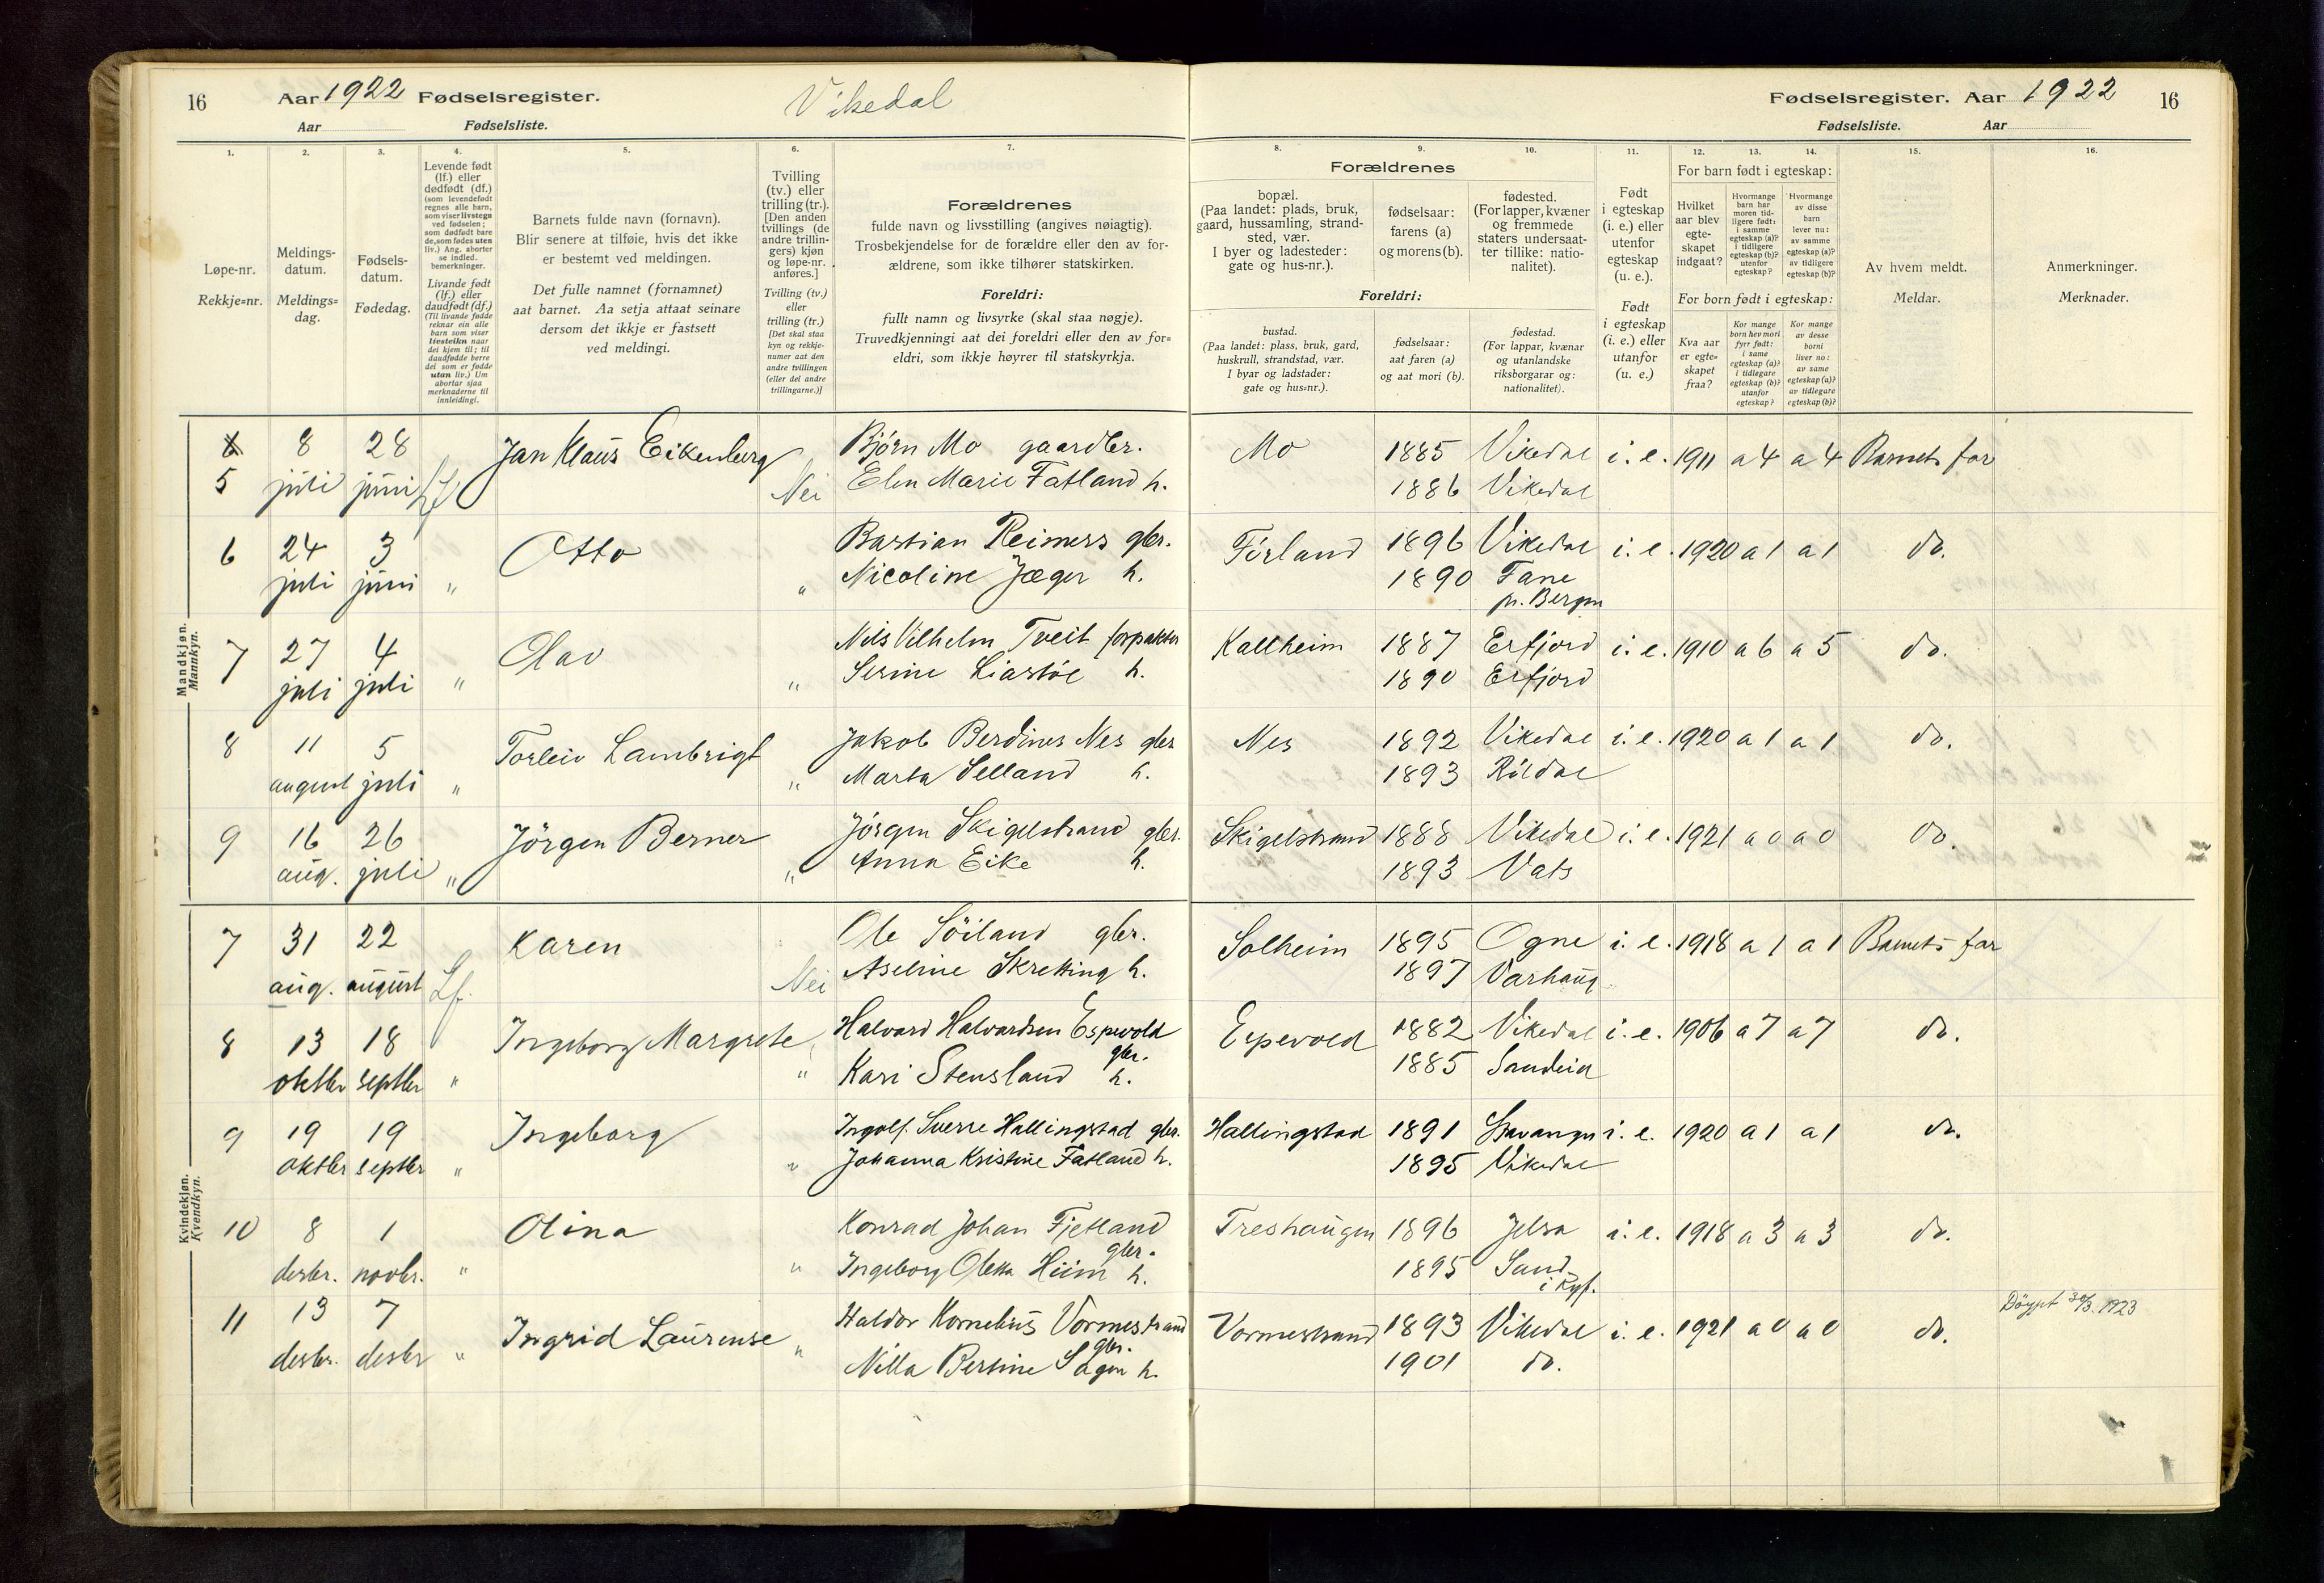 16 Aar 1922 Fødselsregister. Vikedal
Aar Fødselsliste.
Fødselsregister. Aar 1922 16
Fødselsliste. Aar
1. 2. 3. 4. 5. 6. 7.
Løpe-nr.
Rekkje=nr.
Meldings-
datum.
Meldings=
dag.
Fødsels-
datum.
Fødedag.
Levende født
(lf.) eller
dødfødt (df.)
(som levendefødt
regnes alle barn,
som viser livstegn
ved fødselen;
som dødfødt bare
de, som fødes uten
liv.) Ang. aborter
se indled.
bemerkninger.
Livande født
(lf.) eller
daudfødt (df.)
(Til livande fødde
reknar ein alle
barn som viser
livsteikn naar
dei kjem til; til
daudfødde berre
dei som er fødde
utan liv.) Um
abortar sjaa
merknaderne til
innleidingi.
Barnets fulde navn (fornavn).
Blir senere at tilføie, hvis det ikke
er bestemt ved meldingen.
Det fulle namnet (fornamnet)
aat barnet. Aa setja attaat seinare
dersom det ikkje er fastsett
ved meldingi.
Tvilling
(tv.) eller
trilling (tr.).
[Den anden
tvillings (de
andre trillin-
gers) kjøn
og løpe-nr.
anføres.]
Tvilling (tv.)
eller
trilling (tr.)
[Det skal staa
kyn og rekkje-
numer aat den
andre tvillingen
(eller dei andre
trillingarne.)]
Forældrenes
fulde navn og livsstilling (angives nøiagtig).
Trosbekjendelse for de forældre eller den av for-
ældrene, som ikke tilhører statskirken.
Foreldri:
fullt namn og livsyrke (skal staa nøgje).
Truvedkjenningi aat dei foreldri eller den av for=
eldri, som ikkje høyrer til statskyrkja.
8. 9. 10. 11. 12. 13. 14. 15. 16.
Forældrenes
bopæl.
(Paa landet: plads, bruk,
gaard, hussamling, strand-
sted, vær.
I byer og ladesteder:
gate og hus-nr.).
fødselsaar:
farens (a)
og morens (b).
fødested.
(For lapper, kvæner
og fremmede
staters undersaat-
ter tillike: natio-
nalitet).
Foreldri:
bustad.
(Paa landet: plass, bruk, gard,
huskrull, strandstad, vær.
I byar og ladstader:
gate og hus=nr.).
fødselsaar:
aat faren (a)
og aat mori (b).
fødestad.
(For lappar, kvænar
og utanlandske
riksborgarar og:
nationalitet).
Født
i egteskap
(i. e.) eller
utenfor
egteskap
(u. e.).
Født
i egteskap
(i. e.) eller
utanfor
(u. e.)
For barn født i egteskap:
Hvilket
aar blev
egte-
skapet
indgaat?
Hvormange
barn har
moren tid-
ligere født:
i samme
egteskap (a)?
i tidligere
egteskap (b)?
utenfor
egteskap?
Hvormange
av disse
barn
lever nu:
av samme
egteskap (a)?
av tidligere
egteskap (b)?
For born født i egteskap:
Kva aar
er egte=
skapet
fraa?
Kor mange
born hev mori
fyrr født:
i same
egteskap (a)?
i tidlegare
egteskap (b)?
utanfor
egteskap?
Kor mange
av desse
borni
liver no:
av same
egteskap (a)?
av tidlegare
egteskap (b)?
Av hvem meldt.
Meldar.
Anmerkninger.
Merknader.
Mandkjøn.
Mannkyn.
6 8 28 Jan Klaus Eikenberg Bjørn Mo gaardbr. Mo 1885 Vikedal i. e. 1911 a 4 a 4 Barnets far
5 juli juni Lf Nei Elen Marie Fatland h. 1886 Vikedal
6 24 3 Otto Bastian Reimers gbr. Førland 1896 Vikedal i. e. 1920 a 1 a 1 do.
juli juni " " Nicoline Jæger h. 1890 Fane
pr. Bergen
7 27 4 Olav Nils Vilhelm Tveit forpakter Kallheim 1887 Erfjord i. e. 1910 a 6 a 5 do.
juli juli " " Serine Liastøl h. 1890 Erfjord
8 11 5 Torleiv Lambrigt Jakob Berdines Nes gbr Nes 1892 Vikedal i. e. 1920 a 1 a 1 do.
august juli " " Marta Selland h. 1893 Røldal
9 16 26 Jörgen Berner Jörgen Skigelstrand gbr. Skigelstrand 1888 Vikedal i. e. 1921 a 0 a 0 do.
aug. juli " " Anna Eike h. 1893 Vats
Kvindekjøn.
Kvendkyn.
7 31 22 Karen Ole Söiland gbr. Solheim 1895 Ogne i. e. 1918 a 1 a 1 Barnets far
aug. august Lf. Nei Aseline Skretting h. 1897 Varhaug
8 13 18 Ingeborg Margrete Halvard Halvardsen Espevold Espevold 1882 Vikedal i. e. 1906 a 7 a 7 do.
gbr.
oktbr septbr " " Kari Stensland h. 1885 Sandeid
9 19 19 Ingeborg Ingolf Sverre Hallingstad gbr. Hallingstad 1891 Stavanger i. e. 1920 a 1 a 1 do.
oktbr septbr " " Johanna Kristine Fatland h. 1895 Vikedal
10 8 1 Olina Konrad Johan Fjetland Treshaugen 1896 Jelsa i. e. 1918 a 3 a 3 do.
gbr.
desbr. novbr. " " Ingeborg Oletta Hiim h. 1895 Sand
i Ryf.
11 13 7 Ingrid Laurense Haldor Kornelius Vormestrand Vormestrand 1893 Vikedal i. e. 1921 a 0 a 0 do. Döypt 30/3. 1923
gbr.
desbr. desbr " " Nilla Bertine Sagen h. 1901 do.